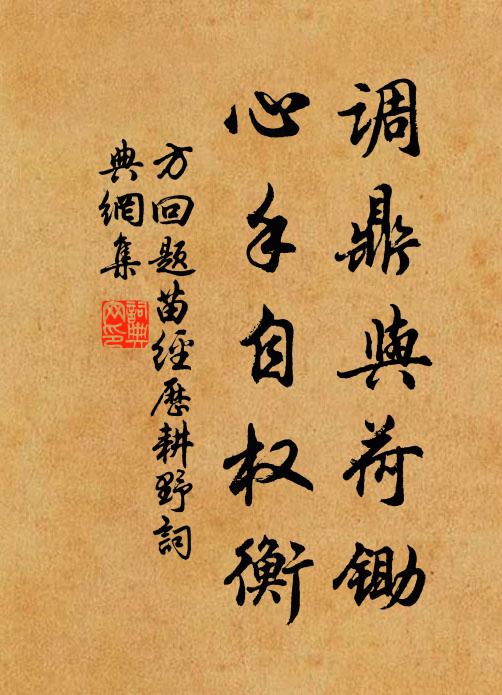 调鼎与荷锄
心手自权衡
方回题苗经历耕野词
典網集
詞典網印